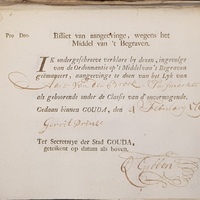 Pro Deo
Billet van aangevinge, wegens het
Middel van 't Begraven.
IK ondergeschreven verklare by dezen, ingevolge
van de Ordonnantie op 't Middel van 't Begraven
geëmaneert, aangevinge te doen van het Lyk van
als gehoorende onder de Classe van onvermogende.
Gedaan binnen GOUDA, den
Gerrit
Ter Secretarye der Stad GOUDA,
getekent op datum als boven.